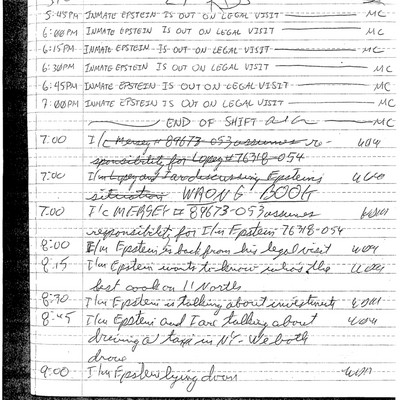 5:45PM INMATE EPSTEIN IS OUT ON LEGAL VISIT MC
6:00PM INMATE EPSTEIN IS OUT ON LEGAL VISIT MC
6:15PM INMATE EPSTEIN IS OUT ON LEGAL VISIT MC
6:30PM INMATE EPSTEIN IS OUT ON LEGAL VISIT MC
6:45PM INMATE EPSTEIN IS OUT ON LEGAL VISIT MC
7:00PM INMATE EPSTEIN IS OUT ON LEGAL VISIT MC
END OF SHIFT
7:00 I/c Mersey # 89673-053 assumes re-
sponsibility for Lopez # 76318-054
7:00 I/m Lopez and I are discussing Epsteins
situation WRONG BOOK
7:00 I/c MERSEY # 89673-053 assumes
responsibility for I/m Epstein 76318-054
8:00 I/m Epstein is back from his legal visit
8:15 I/m Epstein wants to know who's the
best cook on 11 North
8:30 I/m Epstein is talking about investments
8:45 I/m Epstein and I are talking about
driving a taxi in NY. We both
drove
9:00 I/m Epstein lying down